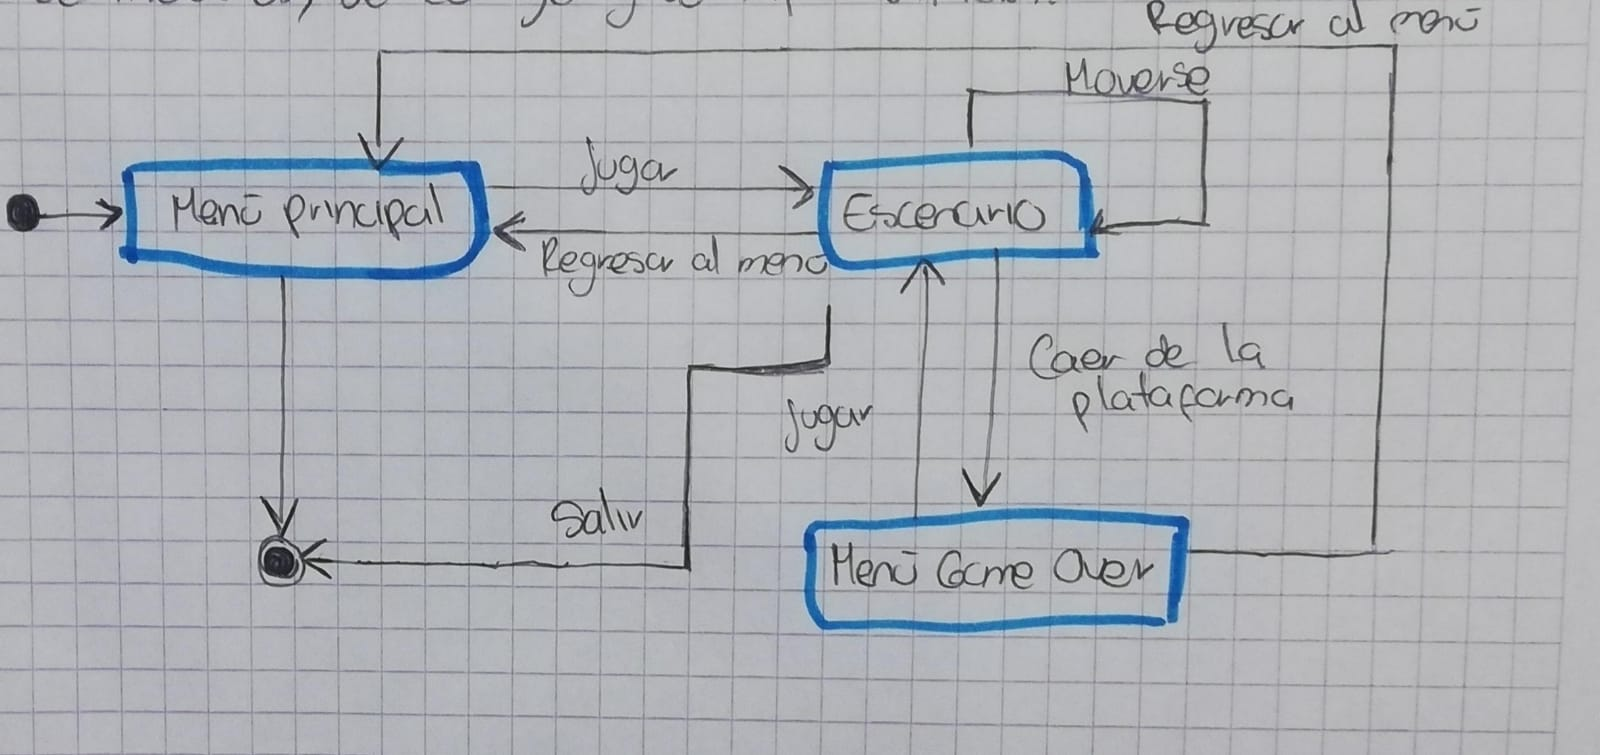 Regresar al menú
Moverse
Jugar
Menú principal
Escenario
Regresar al menú
Caer de la
plataforma
Jugar
Salir
Menú Game Over